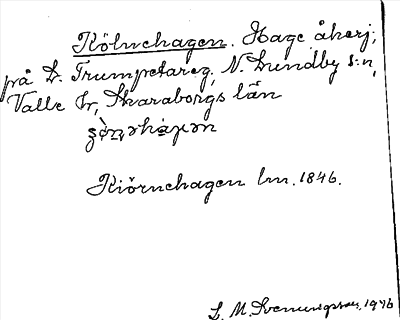 Kölnehagen. Hage åkerj;
på D. Trumpetareg, N. Lundby s:n,
Valle hr, Skaraborgs län
Kiörnehagen lm. 1846.